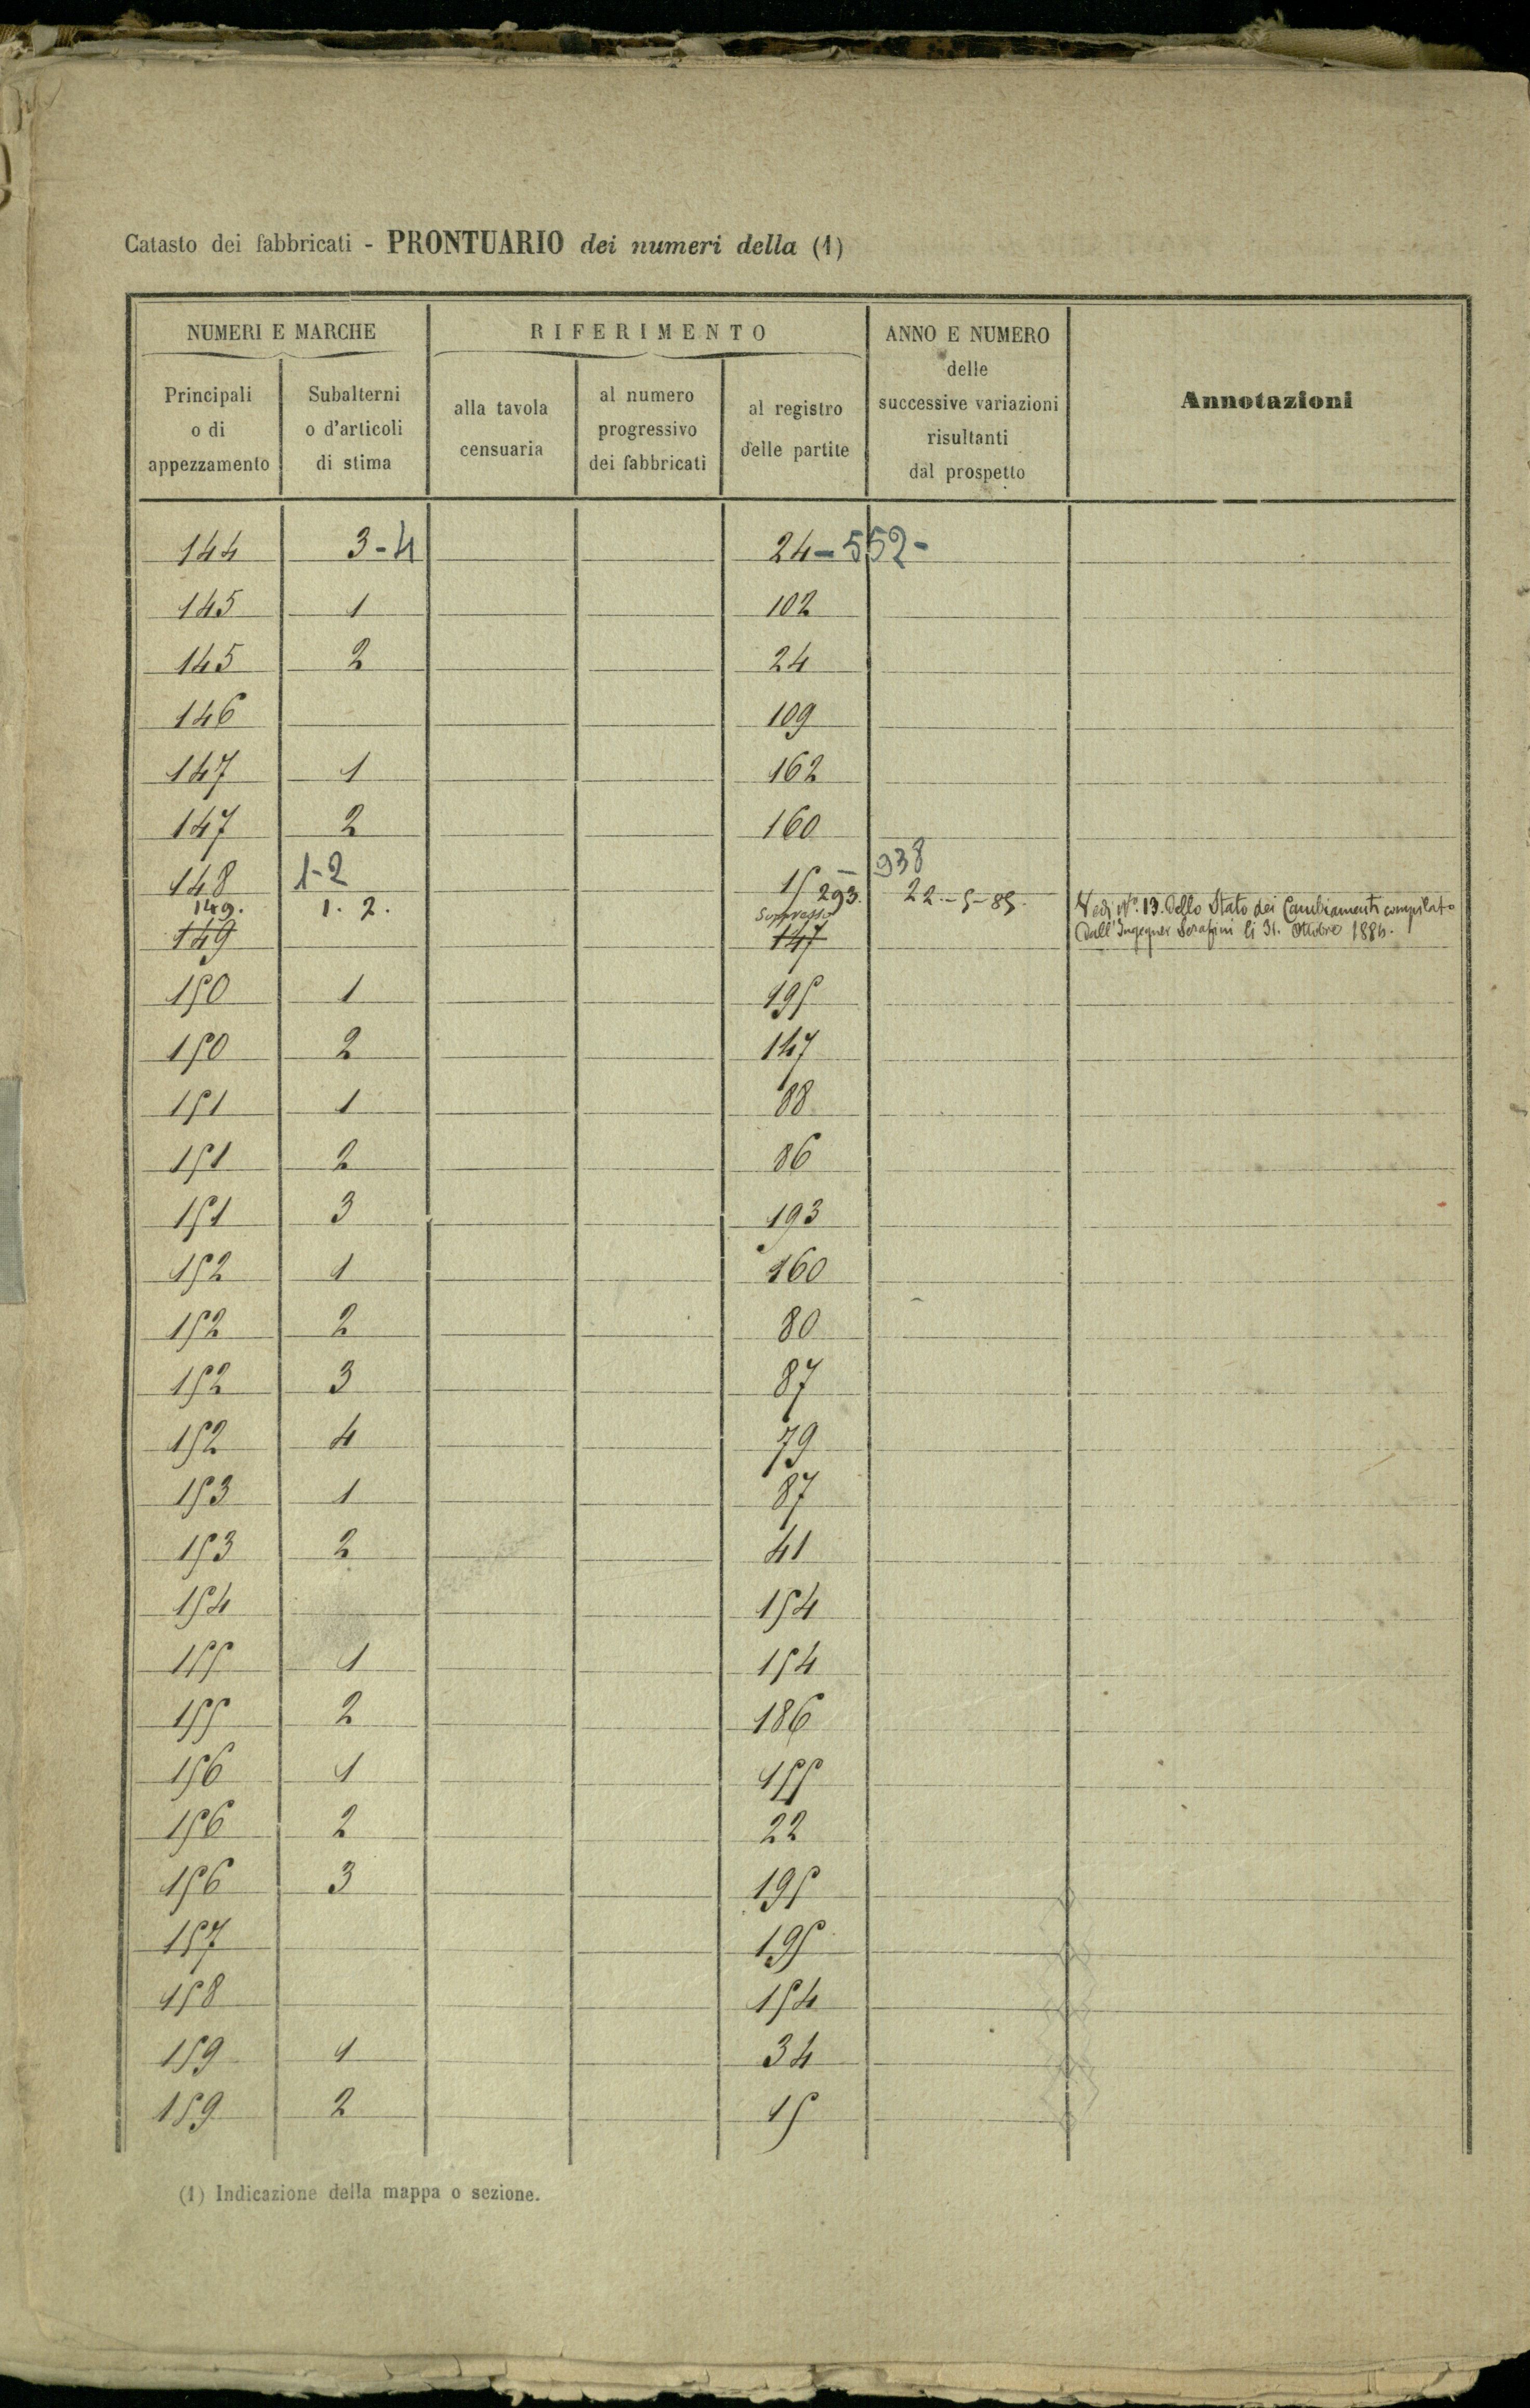 Catasto dei fabbricati - PRONTUARIO dei numeri della (1)
NUMERI E MARCHE
Principali o di appezzamento
Subalterni o d'articoli di stima
RIFERIMENTO
alla tavola censuaria
al numero progressivo dei fabbricati
al registro delle partite
ANNO E NUMERO delle successive variazioni risultanti dal prospetto
Annotazioni
144 3-4 24-552-
145 1 102
145 2 24
146 109
147 1 162
147 2 160
148 1-2 15 - 938
149. 1. 2. 293. 22.-5-85. Vedi No. 13. dello Stato dei Cambiamenti compilato
Soppresso
149 147 dall'Ingegner Serafini li 31. Ottobre 1884.
150 1 195
150 2 147
151 1 88
151 2 86
151 3 193
152 1 160
152 2 80
152 3 87
152 4 79
153 1 87
153 2 41
154 154
155 1 154
155 2 186
156 1 155
156 2 22
156 3 195
157 195
158 154
159 1 34
159 2 15
(1) Indicazione della mappa o sezione.